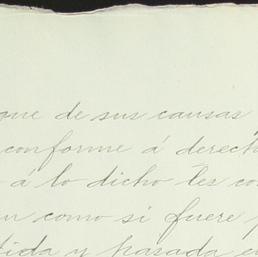 que de sus causas
conforme á derech
á lo dicho les co
como si fuere
tida y pasada e